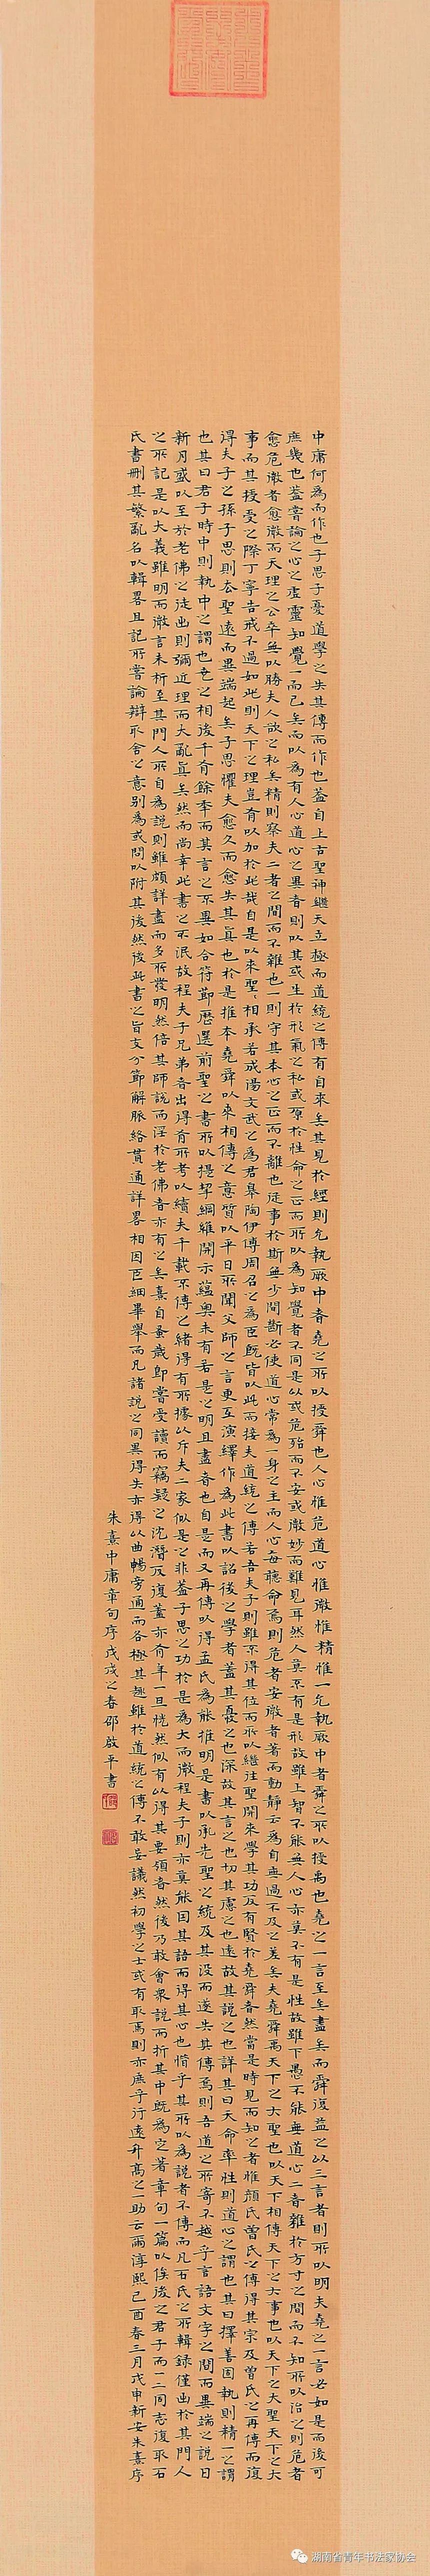 中庸何為而作也子思子憂道學之失其傳而作也蓋自上古聖神繼天立極而道統之傳有自來矣其見於經則允執厥中者堯之所以授舜也人心惟危道心惟微惟精惟一允執厥中者舜之所以授禹也堯之一言至矣盡矣而舜復益之以三言者則所以明夫堯之一言必如是而後可
庶幾也蓋嘗論之心之虛靈知覺一而已矣而以為有人心道心之異者則以其或生於形氣之私或原於性命之正而所以為知覺者不同是以或危殆而不安或微妙而難見耳然人莫不有是形故雖上智不能無人心亦莫不有是性故雖下愚不能無道心二者雜於方寸之間而不知所以治之則危者
愈危微者愈微而天理之公卒無以勝夫人欲之私矣精則察夫二者之間而不雜也一則守其本心之正而不離也從事於斯無少間斷必使道心常為一身之主而人心每聽命焉則危者安微者著而動靜云為自無過不及之差矣夫堯舜禹天下之大聖也以天下相傳天下之大事也以天下之大聖天下之大
事而其授受之際丁寧告戒不過如此則天下之理豈有以加於此哉自是以來聖〻相承若成湯文武之為君皋陶伊傅周召之為臣既皆以此而接夫道統之傳若吾夫子則雖不得其位而所以繼往聖開來學其功反有賢於堯舜者然當是時見而知之者惟顏氏曾氏之傳得其宗及曾氏之再傳而復
得夫子之孫子思則去聖遠而異端起矣子思懼夫愈久而愈失其真也於是推本堯舜以來相傳之意質以平日所聞父師之言更互演繹作為此書以詔後之學者蓋其憂之也深故其言之也切其慮之也遠故其說之也詳其曰天命率性則道心之謂也其曰擇善固執則精一之謂
也其曰君子時中則執中之謂也世之相後千有餘年而其言之不異如合符節歷選前聖之書所以提挈綱維開示蘊奧未有若是之明且盡者也自是而又再傳以得孟氏為能推明是書以承先聖之統及其沒而遂失其傳焉則吾道之所寄不越乎言語文字之間而異端之說日
新月盛以至於老佛之徒出則彌近理而大亂真矣然而尚幸此書之不泯故程夫子兄弟者出得有所考以續夫千載不傳之緒得有所據以斥夫二家似是之非蓋子思之功於是為大而微程夫子則亦莫能因其語而得其心也惜乎其所以為說者不傳而凡石氏之所輯錄僅出於其門人
之所記是以大義雖明而微言未析至其門人所自為說則雖頗詳盡而多所發明然倍其師說而淫於老佛者亦有之矣熹自蚤歲即嘗受讀而竊疑之沈潛反復蓋亦有年一旦恍然似有以得其要領者然後乃敢會眾說而折其中既為定著章句一篇以俟後之君子而一二同志復取石
氏書刪其繁亂名以輯畧且記所嘗論辯取舍之意別為或問以附其後然後此書之旨支分節解脈絡貫通詳畧相因巨細畢舉而凡諸說之同異得失亦得以曲暢旁通而各極其趣雖於道統之傳不敢妄議然初學之士或有取焉則亦庶乎行遠升高之一助云爾淳熙己酉春三月戊申新安朱熹序
朱熹中庸章句序戊戌之春邵啟平書
湖南省青年书法家协会